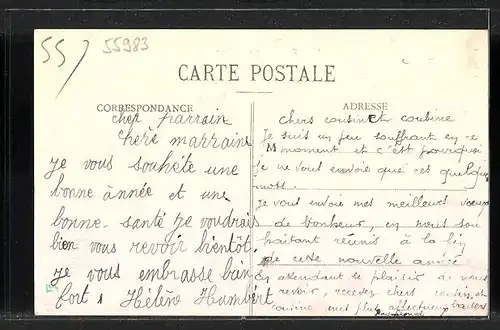 55
55983
CARTE POSTALE
CORRESPONDANCE
ADRESSE
cher parrain
chere marraine
je vous souhéte une
bonne année et une
bonne santé je voudrais
bien vous revoir bientôt,
je vous embrasse bien
fort, Hélène Humbert
chers cousin et cousine
Je suis un peu souffrant en ce
M moment et c'est pourquoi
je ne vous envoie que ces quelques
mots.
je vous envoie mes meilleurs voeux
de bonheur, en nous sou
haitant réunis à la fin
de cette nouvelle année
En attendant le plaisir de nous
revoir, recevez chers cousin et
cousine mes plus affectueux baisers